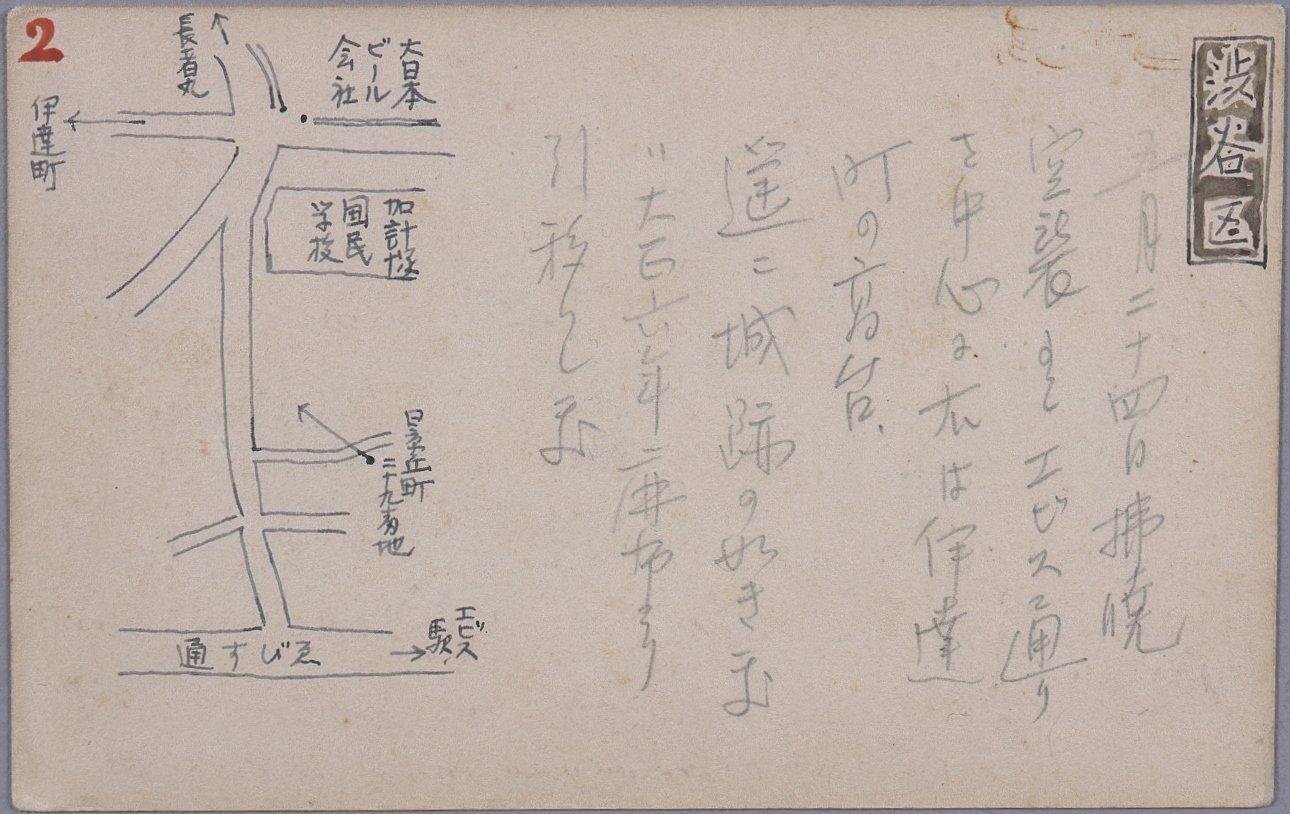 渋谷区
五月二十四日拂暁
空襲あと エビス通り
を中心に は伊達
町の高台、
遥ニ城跡の如き家
ハ大正六年ニ麻布より
引移りし家
2
大日本
ビール
会社
長者丸
伊達町
加計塚
国民
学校
景丘町
二十九番地
エビス
駅
ゑびす通